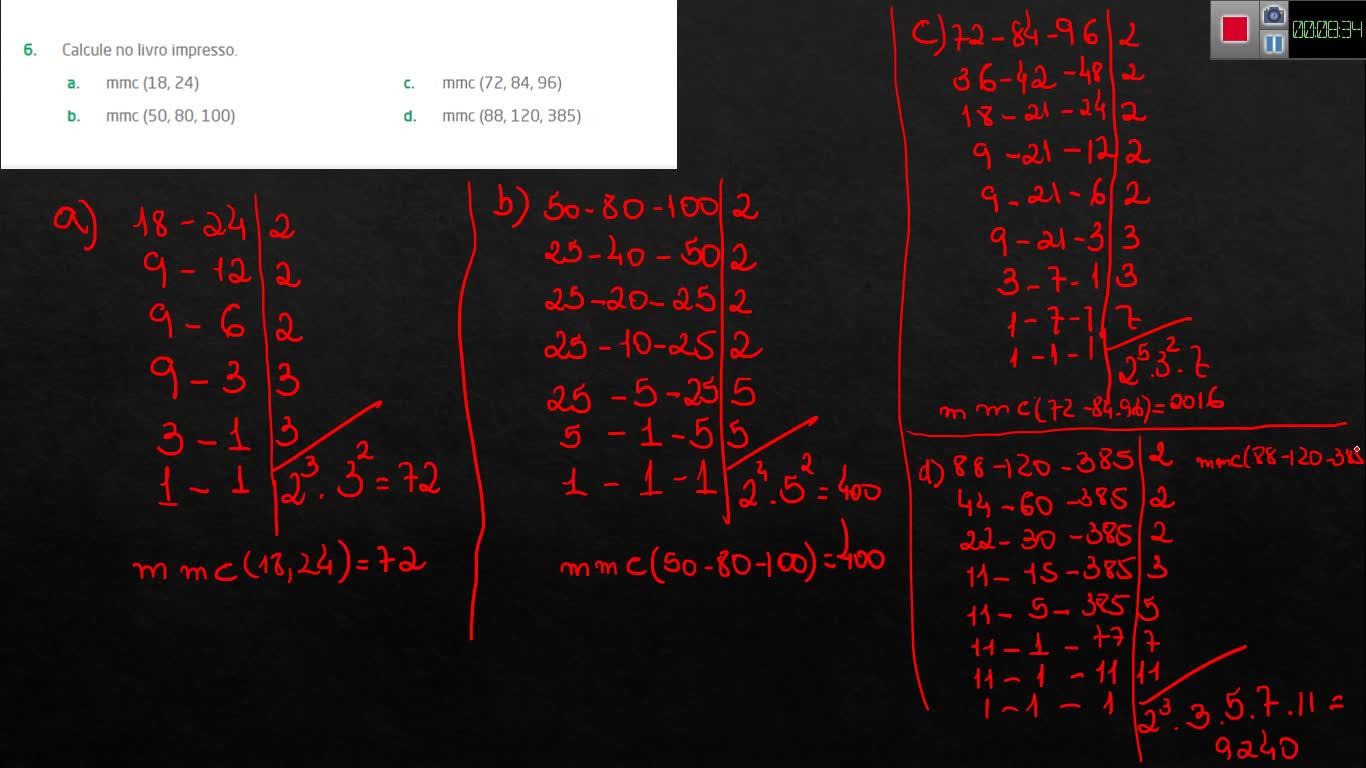 6. Calcule no livro impresso.
a. mmc (18, 24)
b. mmc (50, 80, 100)
c. mmc (72, 84, 96)
d. mmc (88, 120, 385)
00:08:34
a) 18 - 24 | 2
9 - 12 | 2
9 - 6 | 2
9 - 3 | 3
3 - 1 | 3
1 - 1 | 2³ . 3² = 72
mmc (18, 24) = 72
b) 50 - 80 - 100 | 2
25 - 40 - 50 | 2
25 - 20 - 25 | 2
25 - 10 - 25 | 2
25 - 5 - 25 | 5
5 - 1 - 5 | 5
1 - 1 - 1 | 2⁴ . 5² = 400
mmc (50 - 80 - 100) = 400
c) 72 - 84 - 96 | 2
36 - 42 - 48 | 2
18 - 21 - 24 | 2
9 - 21 - 12 | 2
9 - 21 - 6 | 2
9 - 21 - 3 | 3
3 - 7 - 1 | 3
1 - 7 - 1 | 7
1 - 1 - 1 | 2⁵ . 3² . 7
mmc (72 - 84 - 96) = 2016
d) 88 - 120 - 385 | 2
44 - 60 - 385 | 2
22 - 30 - 385 | 2
11 - 15 - 385 | 3
11 - 5 - 385 | 5
11 - 1 - 77 | 7
11 - 1 - 11 | 11
1 - 1 - 1 | 2³ . 3 . 5 . 7 . 11 =
9240
mmc (88 - 120 - 385